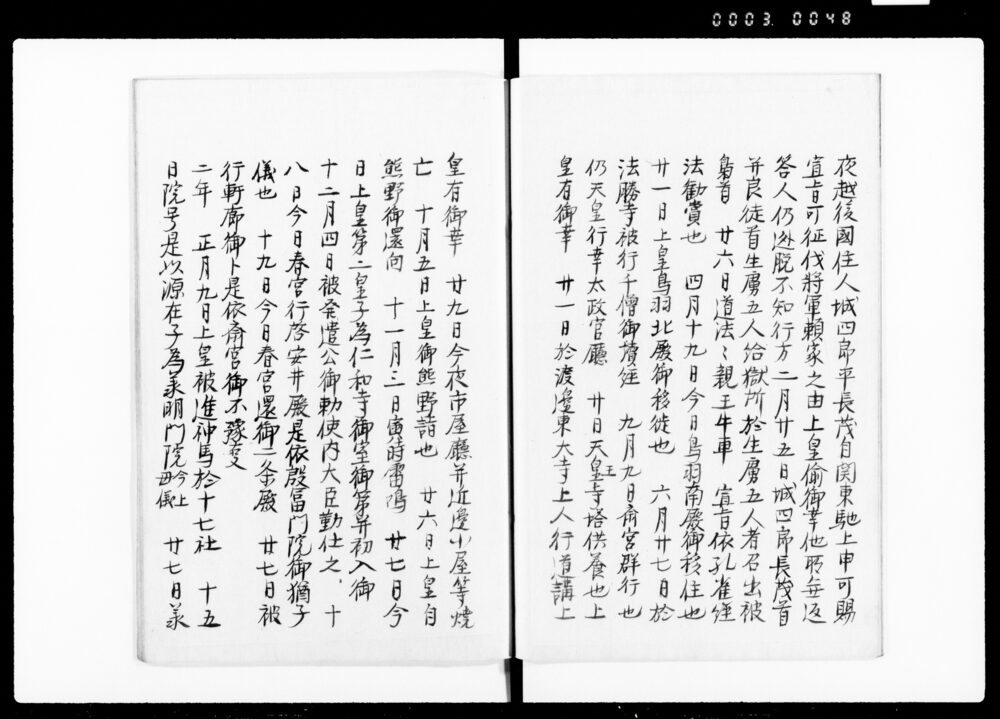 0003 0048
夜越後國住人城四郎平長茂自関東馳上申可賜
宣旨可征伐將軍頼家之由上皇偷御幸他所無返
答人仍逃脱不知行方二月廿五日城四郎長茂首
并良徒首生虜五人給獄所於生虜五人者召出被
梟首 廿六日道法〻親王牛車 宣旨依孔雀經
法勧賞也 四月十九日今日鳥羽南殿御移住也
廿一日上皇鳥羽北殿御移徙也 六月廿七日於
法勝寺被行千僧御讀經 九月九日斎宮群行也
仍天皇行幸太政官廳 廿日天皇寺塔供養也上
王
皇有御幸 廿一日於渡邊東大寺上人行迎講上
皇有御幸 廿九日今夜市屋廳并近邊小屋等燒
亡 十月五日上皇御熊野詣也 廿六日上皇自
熊野御還向 十一月三日寅時雷鳴 廿七日今
日上皇第二皇子為仁和寺御室御弟并初入御
十二月四日被発遣公卿勅使内大臣勤仕之、 十
八日今日春宮行啓安井殿是依殷冨門院御猶子
儀也 十九日今日春宮還御二条殿 廿七日被
行軒廊御卜是依斎宮御不豫変
二年 正月九日上皇被進神馬於十七社 十五
日院号是以源在子為羕明門院今上母儀 廿七日羕